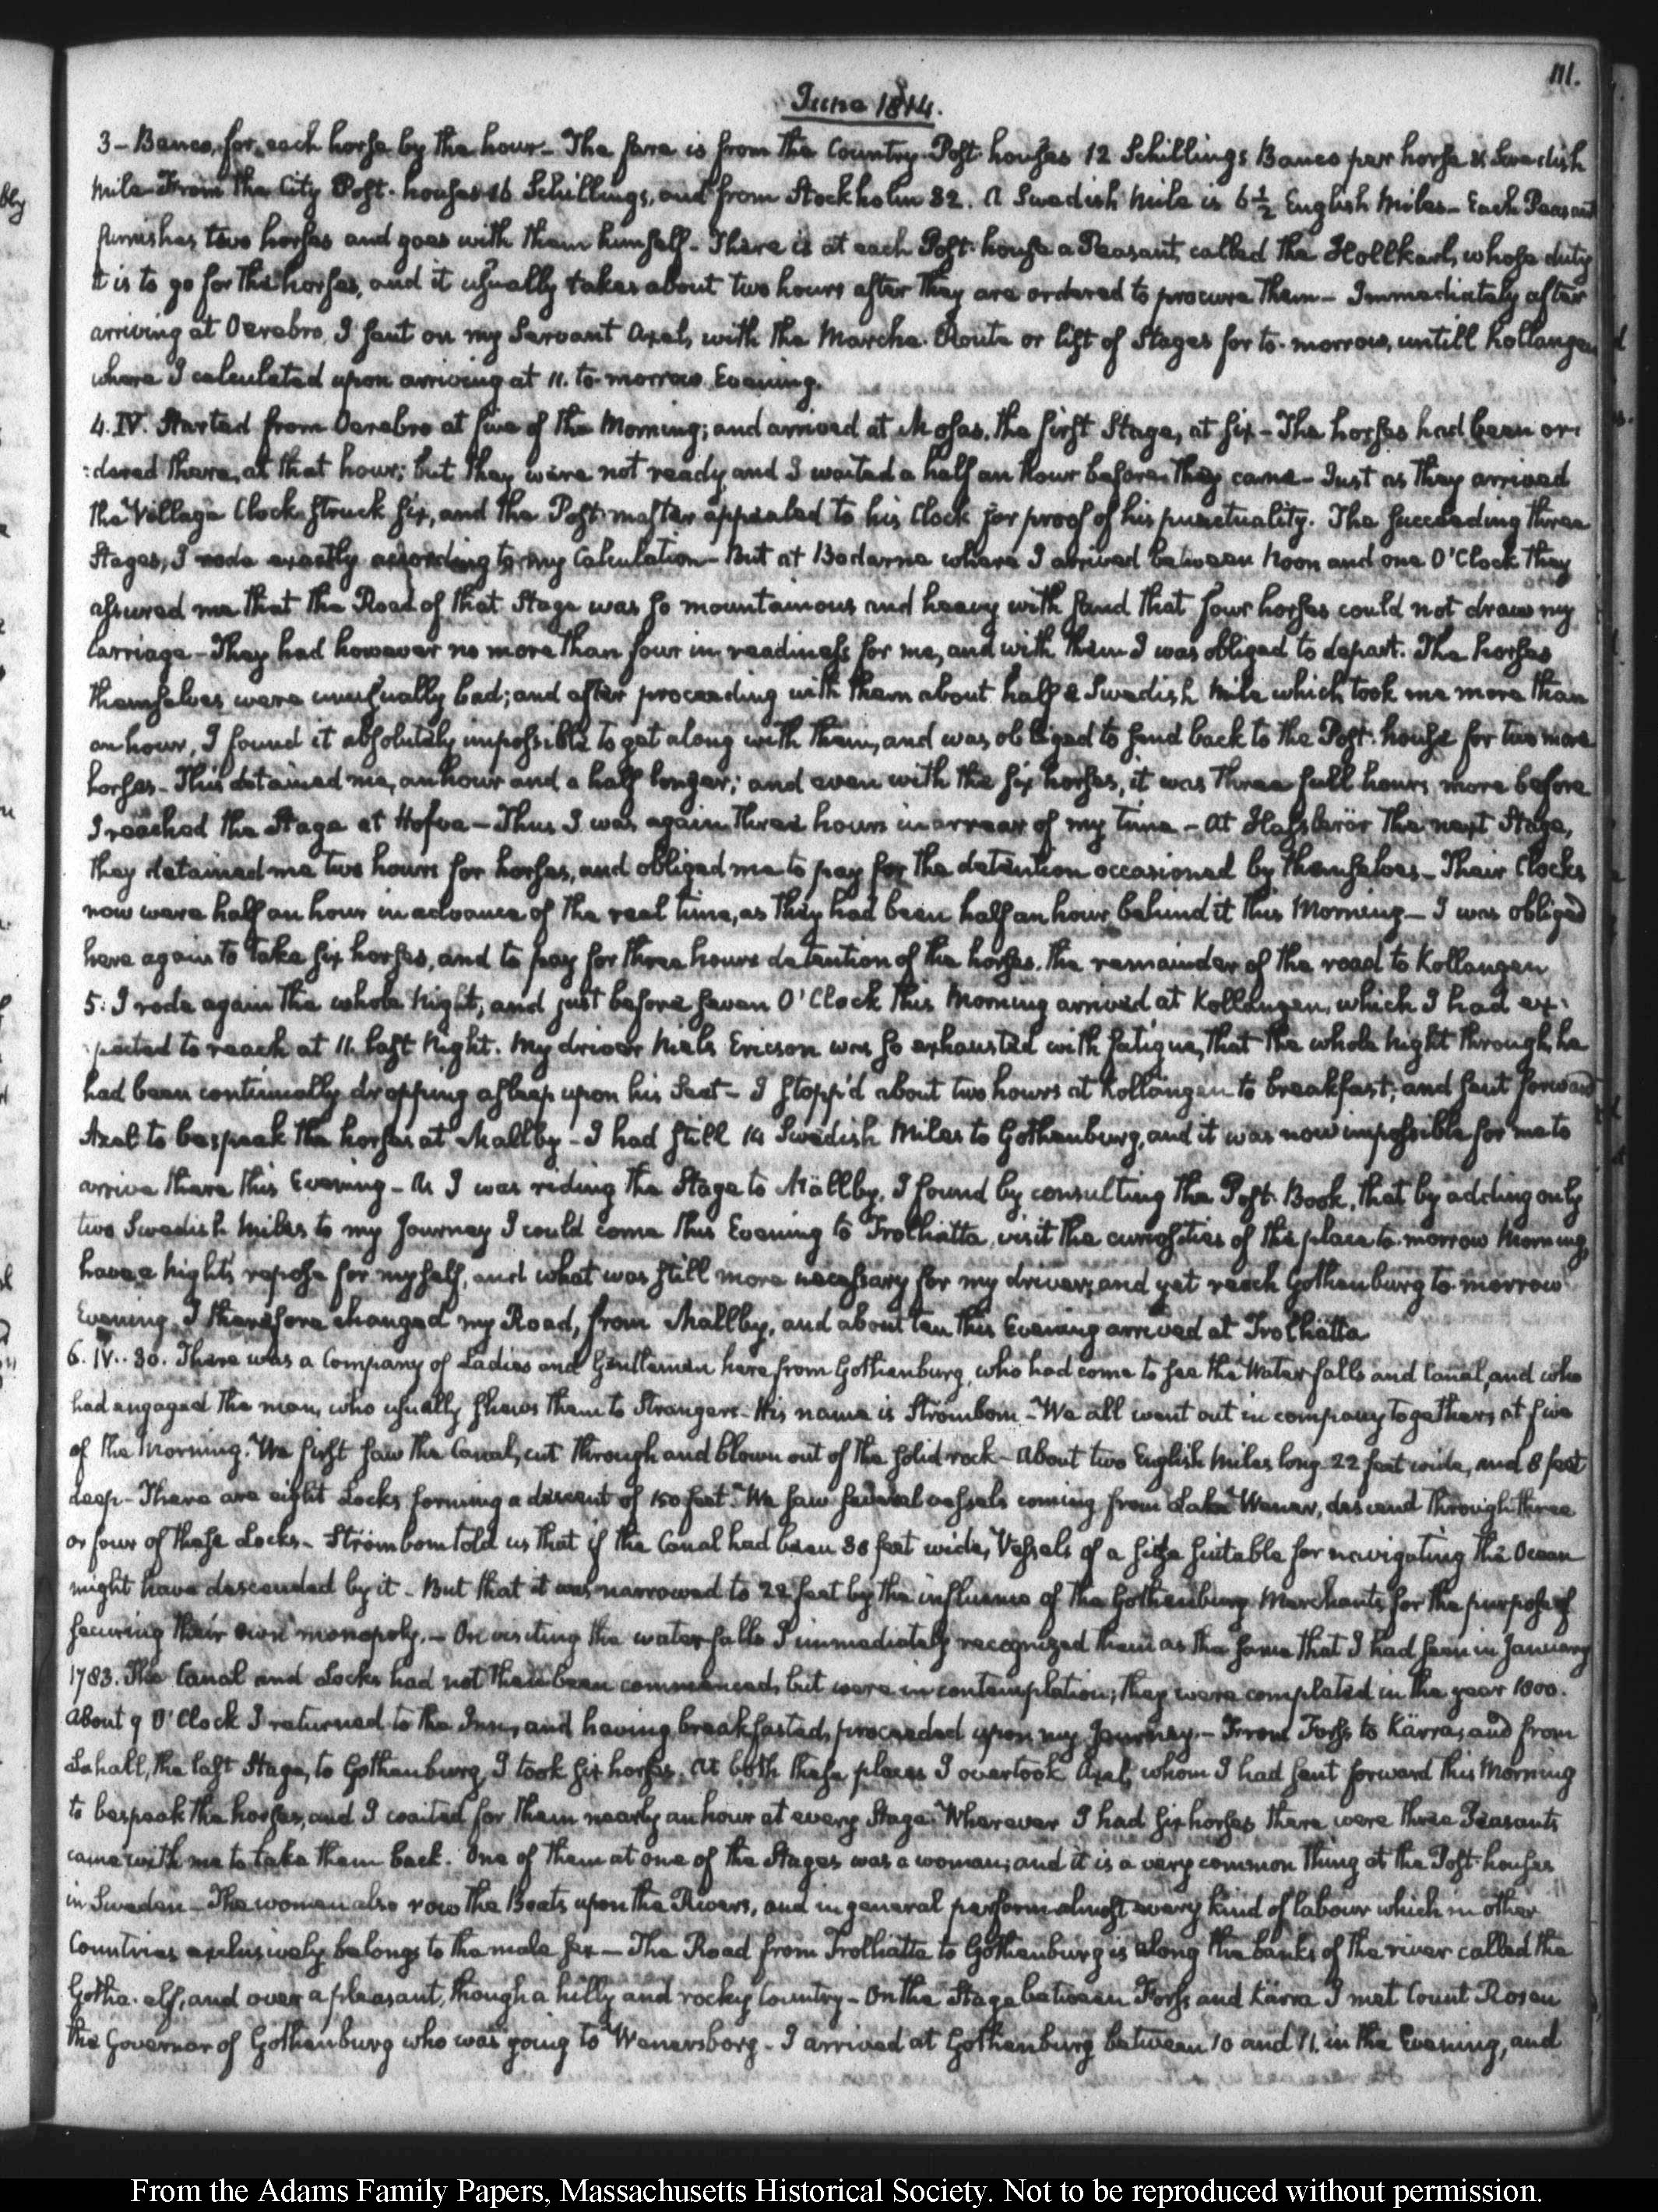 111.
June 1814.
3 - Banco, for each horse by the hour - The fare is from the Country Post-houses 12 Schillings Banco per horse & Swedish
mile - From the City Post-houses 16 Schillings, and from Stockholm 32. A Swedish mile is 6½ English miles - Each Peasant
furnishes two horses and goes with them himself - There is at each Post-house a Peasant, called the Hollkarl, whose duty
it is to go for the horses, and it usually takes about two hours after they are ordered to procure them - Immediately after
arriving at Oerebro, I sent on my Servant Axel, with the Marche-Route or list of Stages for to-morrow, untill Kollangen
where I calculated upon arriving at 11. to-morrow Evening.
4. IV. Started from Oerebro at five of the Morning; and arrived at Mosas, the first Stage, at six - The horses had been or-
:dered there, at that hour; but they were not ready, and I waited a half an hour before they came - Just as they arrived
the Village Clock struck six, and the Post-master appealed to his Clock for proof of his punctuality. The succeeding three
Stages, I rode exactly according to my Calculation - But at Bodarne where I arrived between Noon and one O'Clock they
assured me that the Road of that Stage was so mountainous and heavy with sand that four horses could not draw my
Carriage - They had however no more than four in readiness for me, and with them I was obliged to depart. The horses
themselves were unusually bad; and after proceeding with them about half a Swedish mile which took me more than
an hour, I found it absolutely impossible to get along with them, and was obliged to send back to the Post-house for two more
horses - This detained me, an hour and a half longer; and even with the six horses, it was three full hours more before
I reached the Stage at Hofva - Thus I was again three hours in arrear of my time - At Hassberör the next Stage,
they detained me two hours for horses, and obliged me to pay for the detention occasioned by themselves - Their Clocks
now were half an hour in advance of the real time, as they had been half an hour behind it this Morning - I was obliged
here again to take six horses, and to pay for three hours detention of the horses, the remainder of the road to Kollangen
5. I rode again the whole Night, and just before seven O'Clock this Morning arrived at Kollängen, which I had ex-
:pected to reach at 11. last Night. My driver Niels Ericson was so exhausted with fatigue, that the whole Night through, he
had been continually dropping asleep upon his Seat - I stopp'd about two hours at Kollängen to breakfast; and sent forward
Axel to bespeak the horses at Mallby - I had still 14 Swedish Miles to Gothenburg, and it was now impossible for me to
arrive there this Evening - As I was riding the Stage to Mällby, I found by consulting the Post-Book, that by adding only
two Swedish miles to my Journey I could come this Evening to Trolhätta, visit the curiosities of the place to-morrow Morning,
have a night's repose for myself, and what was still more necessary for my driver; and yet reach Gothenburg to-morrow
Evening. I therefore changed my Road, from Mallby, and about ten this Evening arrived at Trolhätta
6. IV.. 30. There was a Company of Ladies and Gentlemen here from Gothenburg, who had come to see the Water-falls and Canal, and who
had engaged the man, who usually shews them to Strangers - His name is Strömbom - We all went out in company together, at five
of the Morning. We first saw the Canal, cut through and blown out of the solid rock - About two English miles long 22 feet wide, and 8 feet
deep - There are eight Locks forming a descent of 150 feet. We saw several vessels coming from Lake Wener, descend through three
or four of these Locks - Strömbom told us that if the Canal had been 30 feet wide, Vessels of a size suitable for navigating the Ocean
might have descended by it - But that it was narrowed to 22 feet by the influence of the Gothenburg Merchants for the purpose of
securing their own monopoly. - On visiting the water-falls I immediately recognized them as the same that I had seen in January
1783. The Canal and Locks had not then been commenced, but were in contemplation; they were completed in the year 1800.
About 9 O'Clock I returned to the Inn, and having breakfasted, proceeded upon my Journey. - From Forss to Kärra, and from
Lahall, the last Stage, to Gothenburg, I took six horses. At both these places I overtook Axel, whom I had sent forward this Morning
to bespeak the horses, and I waited for them nearly an hour at every Stage. Wherever I had six horses there were three Peasants
came with me to take them back. One of them at one of the Stages was a woman; and it is a very common thing at the Post-houses
in Sweden - The women also row the Boats upon the Rivers, and in general perform almost every kind of labour which in other
Countries, exclusively belongs to the male sex - The Road from Trolhätta to Gothenburg is along the banks of the river called the
Gotha-elf, and over a pleasant, though a hilly and rocky Country - On the Stage between Forss and Kärra I met Count Rosen
the Governor of Gothenburg who was going to Wenersborg - I arrived at Gothenburg between 10 and 11. in the Evening, and
From the Adams Family Papers, Massachusetts Historical Society. Not to be reproduced without permission.